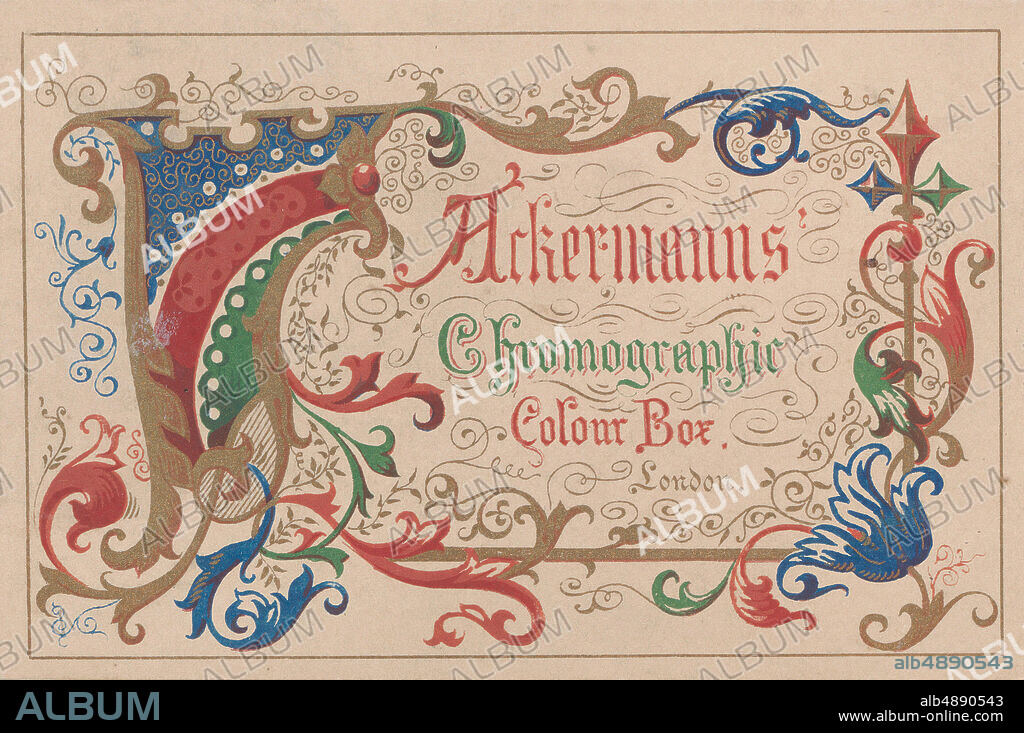 Ackermanns'
Chromographic
Colour Box.
London.
ALBUM
alb4890543
ALBUM
alb4890543
www.album-online.com